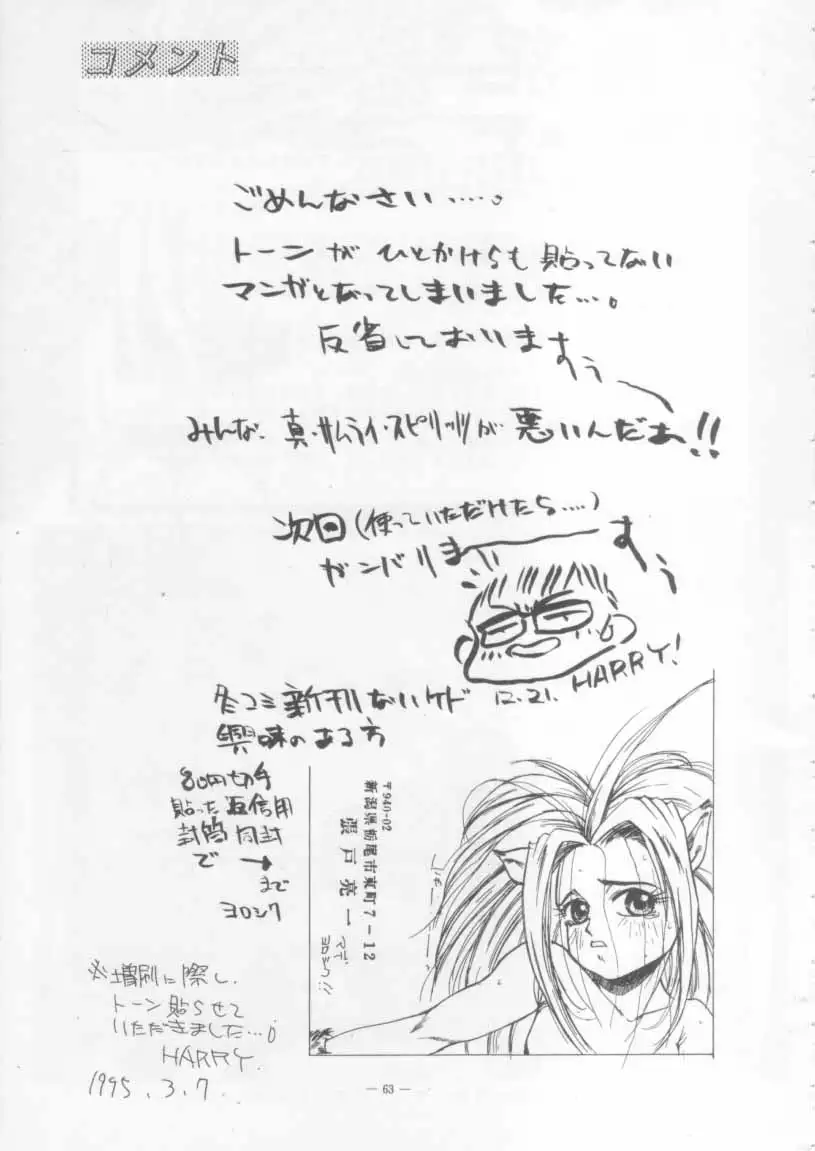 コメント
ごめんなさい・・・・・。
トーンが ひとかけらも 貼ってない
マンガとなってしまいました・・・。
反省しております
すぅ
みんな、真・サムライ・スピリッツが 悪いんだぁ!!
次回(使っていただけたら・・・・)
ガンバリます
すぅ
HARRY!
12.21.
冬コミ新刊ないケド
興味のある方
80円切手
貼った返信用
封筒同封
で →
まで
ヨロシク
〒940-02
新潟県栃尾市東町7-12
張戸亮一
マデ
ヨロシク!!
※増刷に際し、
トーン貼らせて
いただきました・・・。
HARRY.
1995.3.7.
— 63 —